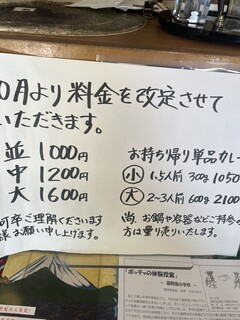 0月より料金を改定させて
いただきます。
並 1000円
中 1200円
大 1600円
何卒ご理解くださいます
様お願い申し上げます。
お持ち帰り単品カレー
小 1.5人前 300g 1050
大 2~3人前 600g 2100
尚、お鍋や容器などご持参の
方は量り売りいたします。
「ボッチャの体験授業」